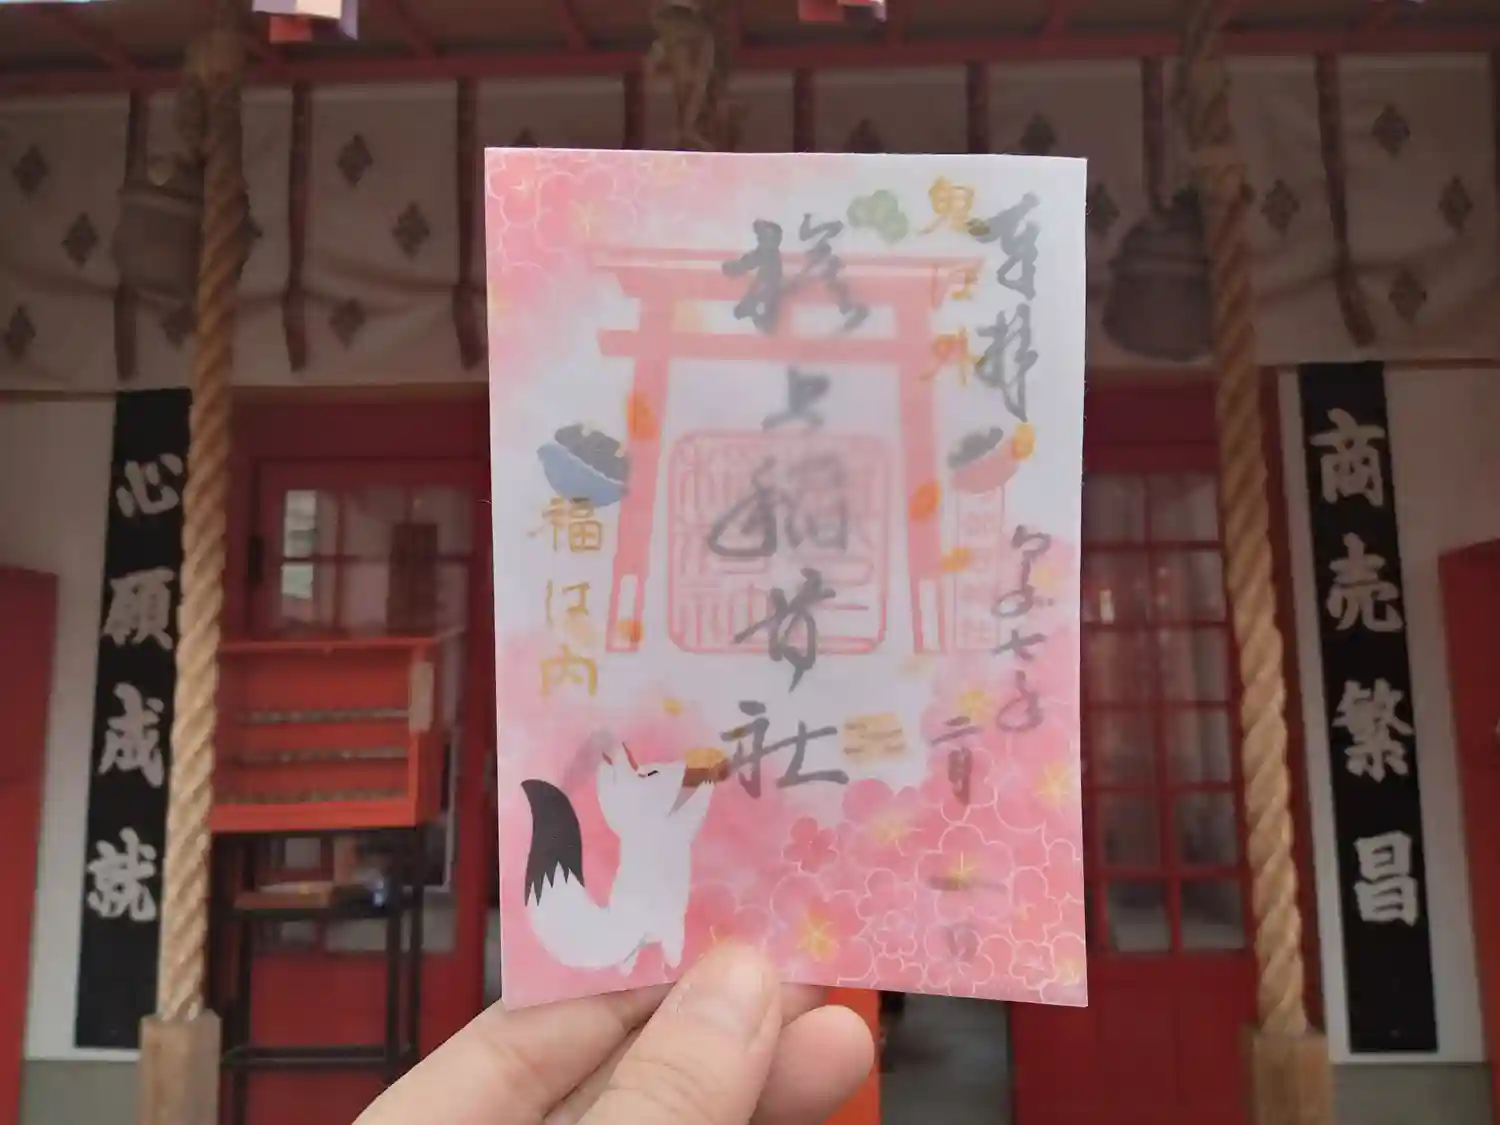 奉拝
令和七年
二月一日
鬼は外
桜上稲荷社
福は内
商売繁昌
心願成就